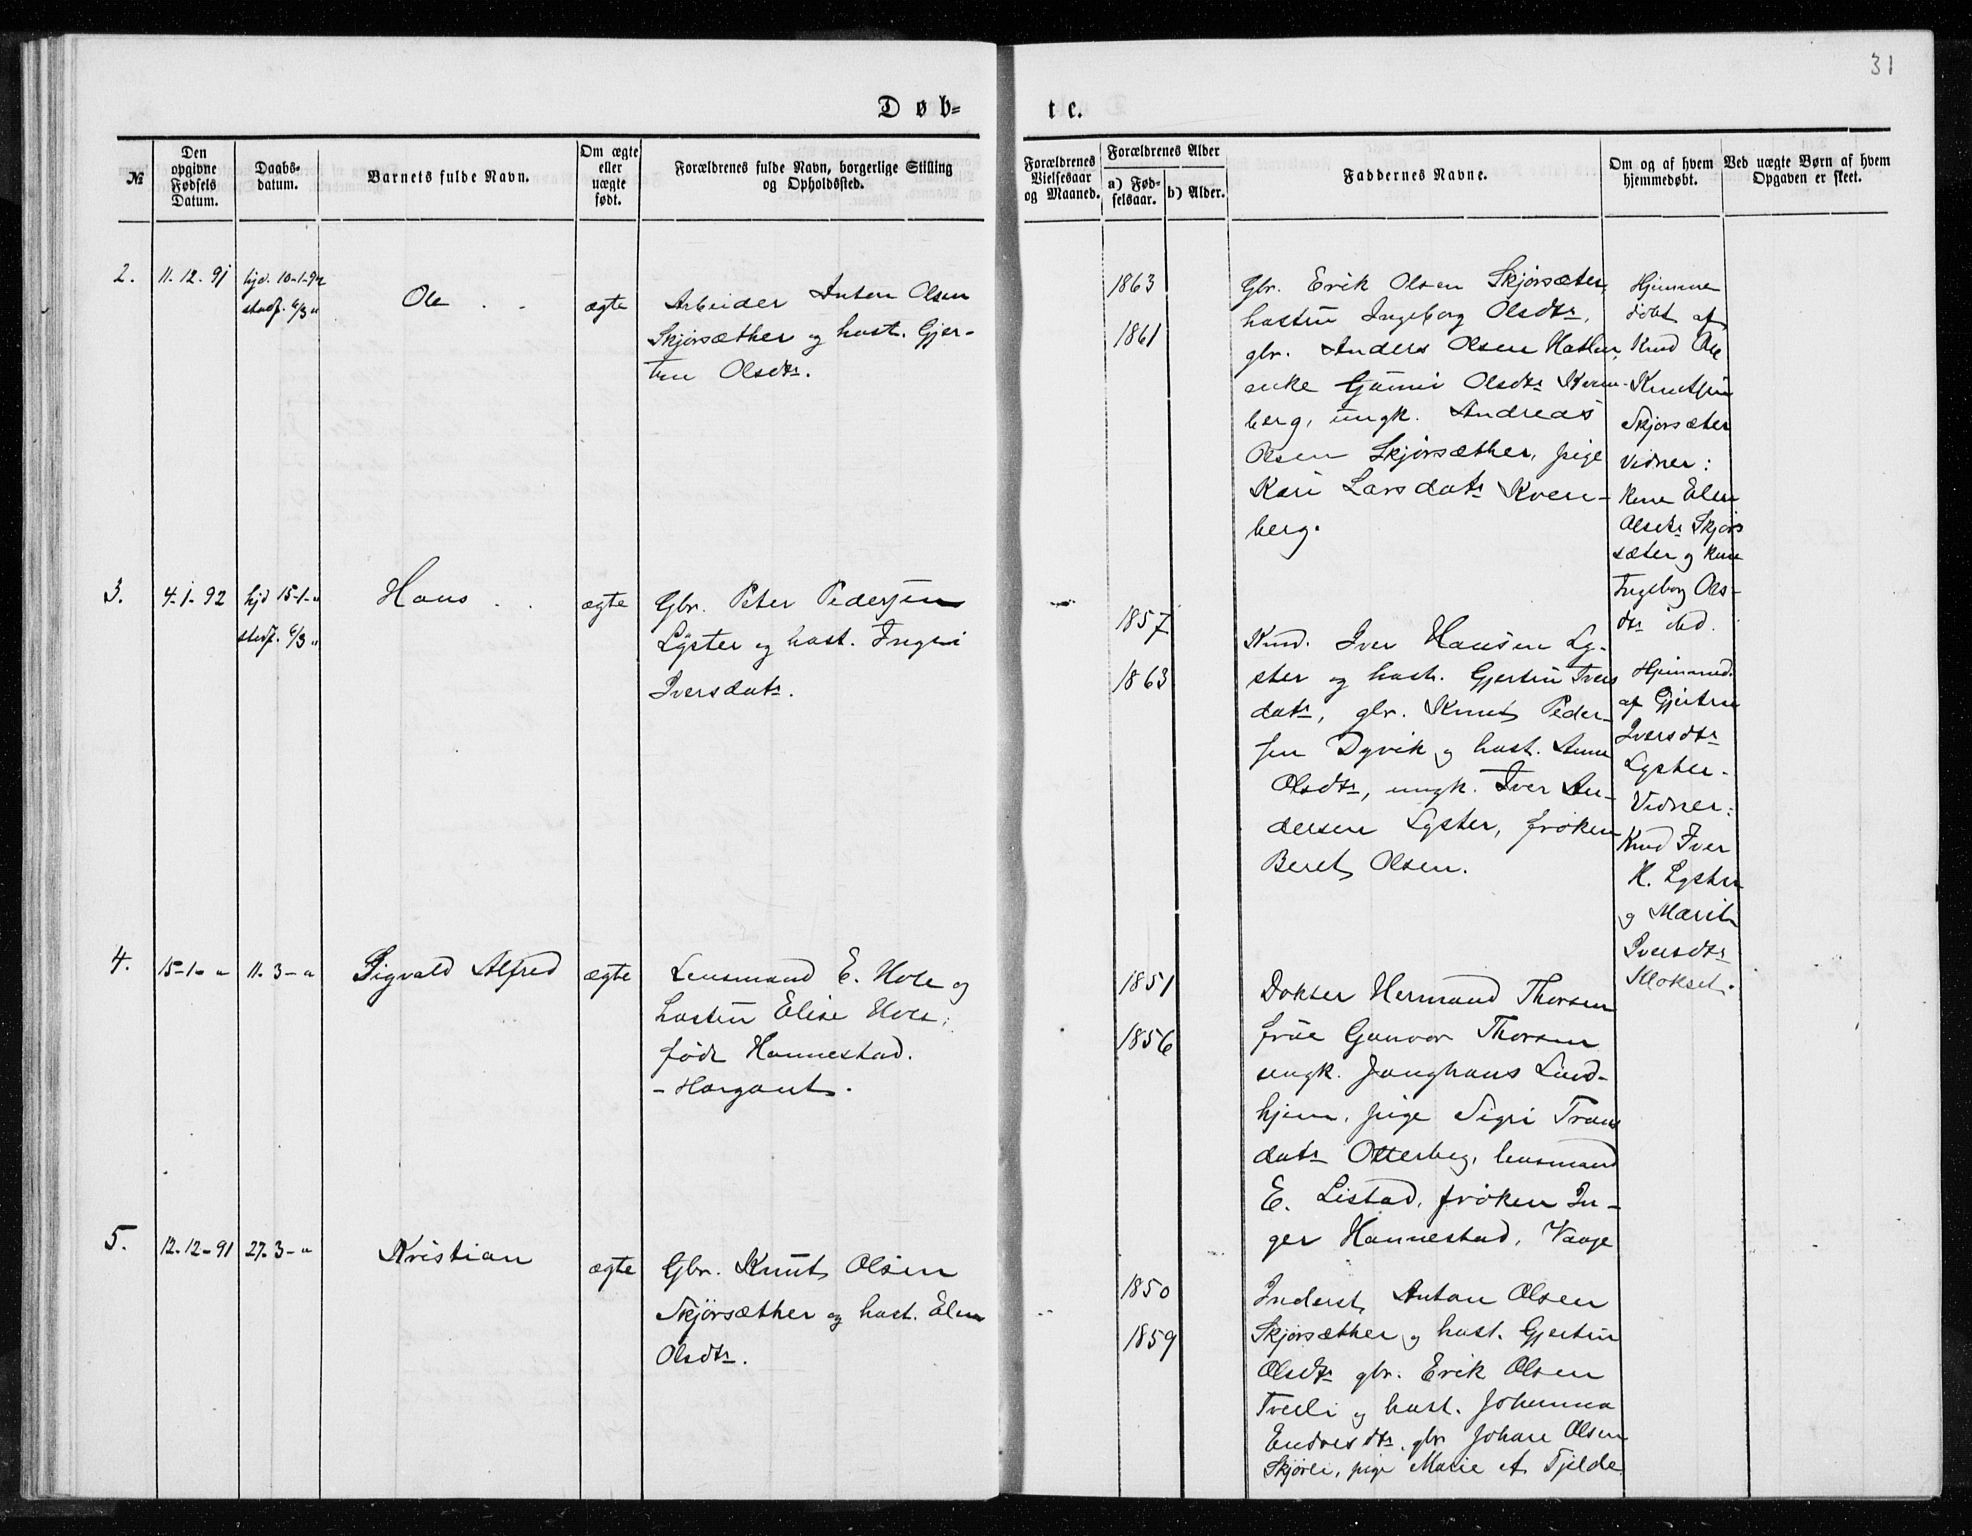 31
Døb-
te.
№
Den opgivne Fødsels Datum.
Daabs-datum.
Barnets fulde Navn.
Om ægte eller uægte født.
Forældrenes fulde Navn, borgerlige Stilling og Opholdssted.
Forældrenes Vielsesaar og Maaned.
Forældrenes Alder
a) Fød-selsaar.
b) Alder.
Faddernes Navne.
Om og af hvem hjemmedøbt.
Ved uægte Børn af hvem Opgaven er skeet.
2.
11-12-91
hjd. 10-1-92
stadf. 6/3 "
Ole
ægte
Arbeider Anton Olsen
Skjørsæther og hust. Gjer-
tine Olsdtr.
1863
1861
Gbr. Erik Olsen Skjørsæter,
hustru Ingeborg Olsdtr,
gbr. Anders Olsen
enke Olsdtr Kven-
berg, ungk. Andreas
Olsen Skjørsæther, pige
Kari Larsdatr Kven-
berg.
Hjemme
døbt af
Knud Ole
Knutsen
Skjørsæter
Vidner:
Kone Elen
Olsdtr Skjørs
sæter og Kone
Ingeborg Ols-
dtr ibd.
3.
4-1-92
hjd 15-1-"
stadf. 6/3 "
Hans
ægte
Gbr. Peter Pedersen
Lyster og hust. Ingeri
Iversdatr.
1857
1863
Kmd. Iver Hansen Ly-
ster og hust. Gjertru Ivers
datr, gbr. Knut Peder-
sen Dyvik og hust. Anne
Olsdtr, ungk. Iver An-
dersen Lyster, frøken
Beret Olsen.
Hjemmed.
af Gjertru
Iversdtr
Lyster.
Vidner:
Kmd Iver
H. Lyster
og Marit
Iversdtr
Klokset.
4.
15-1-"
11-3-"
Sigvald Alfred
ægte
Lensmand E. Hole og
hustru Elise Hole,
født Hannestad.
- Hargaut.
1851
1856
Doktor Hermand Thoresen
frue Gunvor Thoresen
ungk. Janghans Lind-
hjem, pige Sigri Trons
datr Otterbeg, lensmand
E. Listad, frøken In-
ger Hannestad, Vaage
5.
12-12-91
27-3-"
Kristian
ægte
Gbr. Knut Olsen
Skjørsæther og hust. Elen
Olsdtr.
1850
1859
Inderst Anton Olsen
Skjørsæther og hust. Gjertin
Olsdtr gbr. Erik Olsen
Tverli og hust. Johanna
Endresdtr. gbr Johan Olsen
Skjørli, pige Marie A. Tjelde